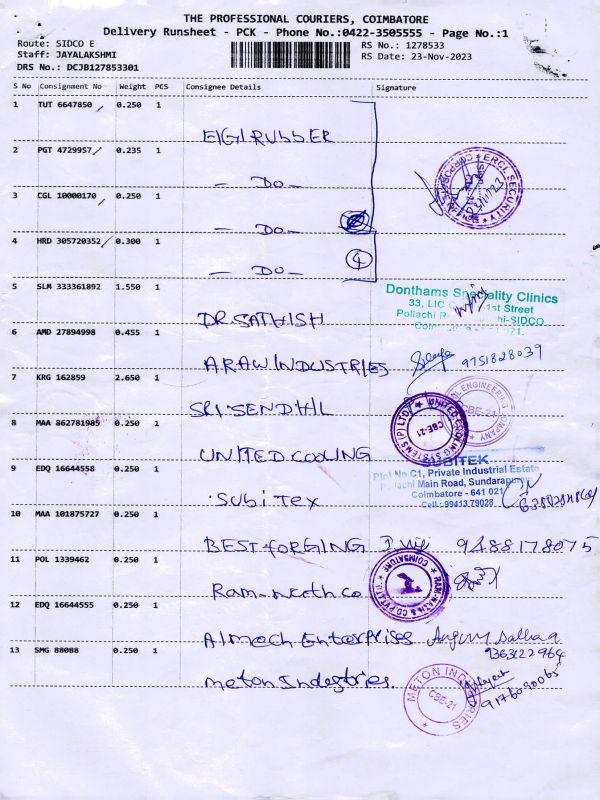 THE PROFESSIONAL COURIERS, COIMBATORE
Delivery Runsheet - PCK - Phone No.:0422-3505555 - Page No.:1
Route: SIDCO E
Staff: JAYALAKSHMI
DRS No.: DCJB127853301
RS No.: 1278533
RS Date: 23-Nov-2023
S No Consignment No Weight PCS Consignee Details Signature
1 TUT 6647850 0.250 1
EIGI RUBBER
2 PGT 4729957 0.235 1
- DO -
3 CGL 10000170 0.250 1
- DO -
4 HRD 305720352 0.300 1
4
- DO -
SECURITY
23/11/23
5 SLM 333361892 1.550 1
DR. SATHISH
Donthams Speciality Clinics
33, LIC 1st Street
Pollachi hi-SIDCO
6 AMD 27894998 0.455 1
ARAW INDUSTRIES 9751828039
7 KRG 162859 2.650 1
SRI SENDHIL
ENGINEERING COMPANY
CBE-21
8 MAA 862781985 0.250 1
UNITED COOLING
UNITED COOLING SYSTEMS (P) LTD
CBE-21
9 EDQ 16644558 0.250 1
SUBITEX
SUBITEK
Plot No.C1, Private Industrial Estate
Pollachi Main Road, Sundarapuram
Coimbatore - 641 021
Cell: 99413 79028
10 MAA 101875727 0.250 1
BEST FORGING 9488178075
11 POL 1339462 0.250 1
Ram-Neeth co
COIMBATORE
12 EDQ 16644555 0.250 1
Almech Enterprises
9363122964
13 SMG 88088 0.250 1
Meton Industries
METON INDUSTRIES
CBE-21
9176090065